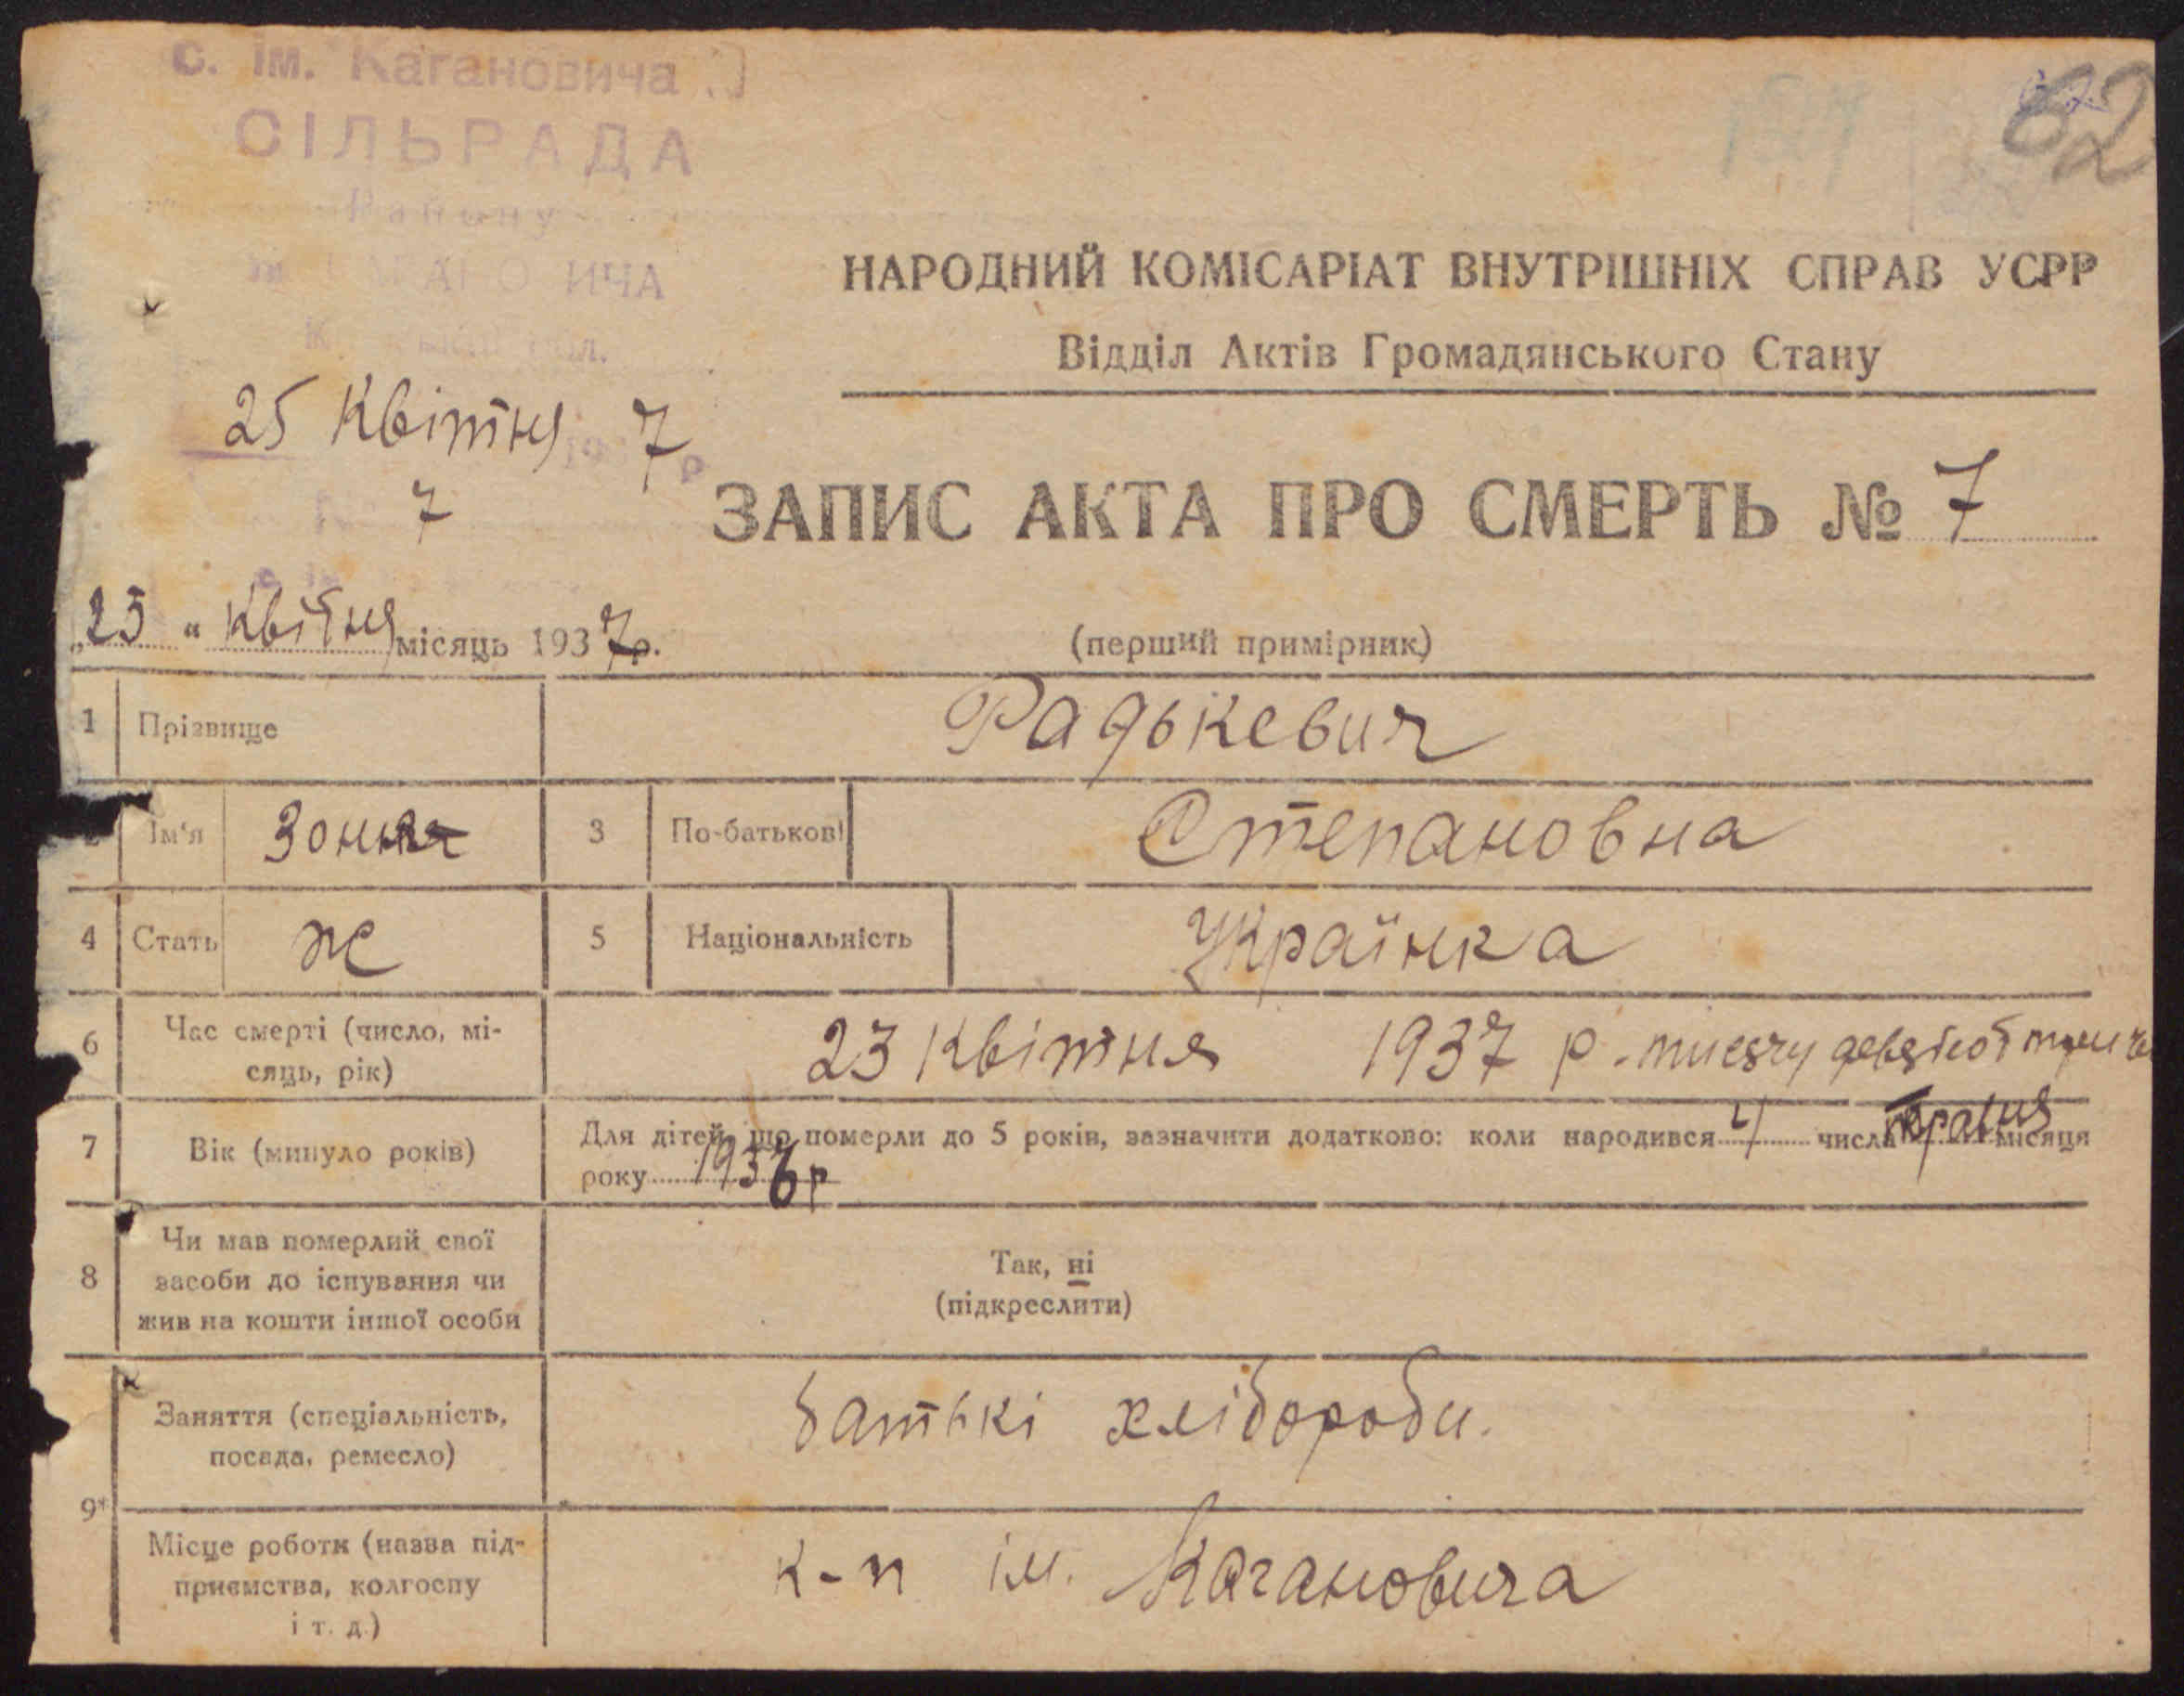 с. ім. Кагановича
СІЛЬРАДА
Району
ИЧА
25 Квітня 7 р
7
82
НАРОДНИЙ КОМІСАРІАТ ВНУТРІШНІХ СПРАВ УСРР
Відділ Актів Громадянського Стану
ЗАПИС АКТА ПРО СМЕРТЬ № 7
„25 “ Квітня місяць 1937р.
(перший примірник)
1 Прізвище Радькевич
Ім'я 3 По-батькові Степановна
4 Стать Ж 5 Національність Українка
6 Час смерті (число, мі-
сяць, рік) 23 Квітня 1937 р.
7 Вік (минуло років) Для дітей, що померли до 5 років, зазначити додатково: коли народився 4 числа Травня місяця
року 1936 р
8 Чи мав померлий свої
засоби до існування чи
жив на кошти іншої особи
Так, ні
(підкреслити)
Заняття (спеціальність,
посада, ремесло)
батькі хлібороби.
9*
Місце роботи (назва під-
приємства, колгоспу
і т. д.)
к-п ім. Кагановича